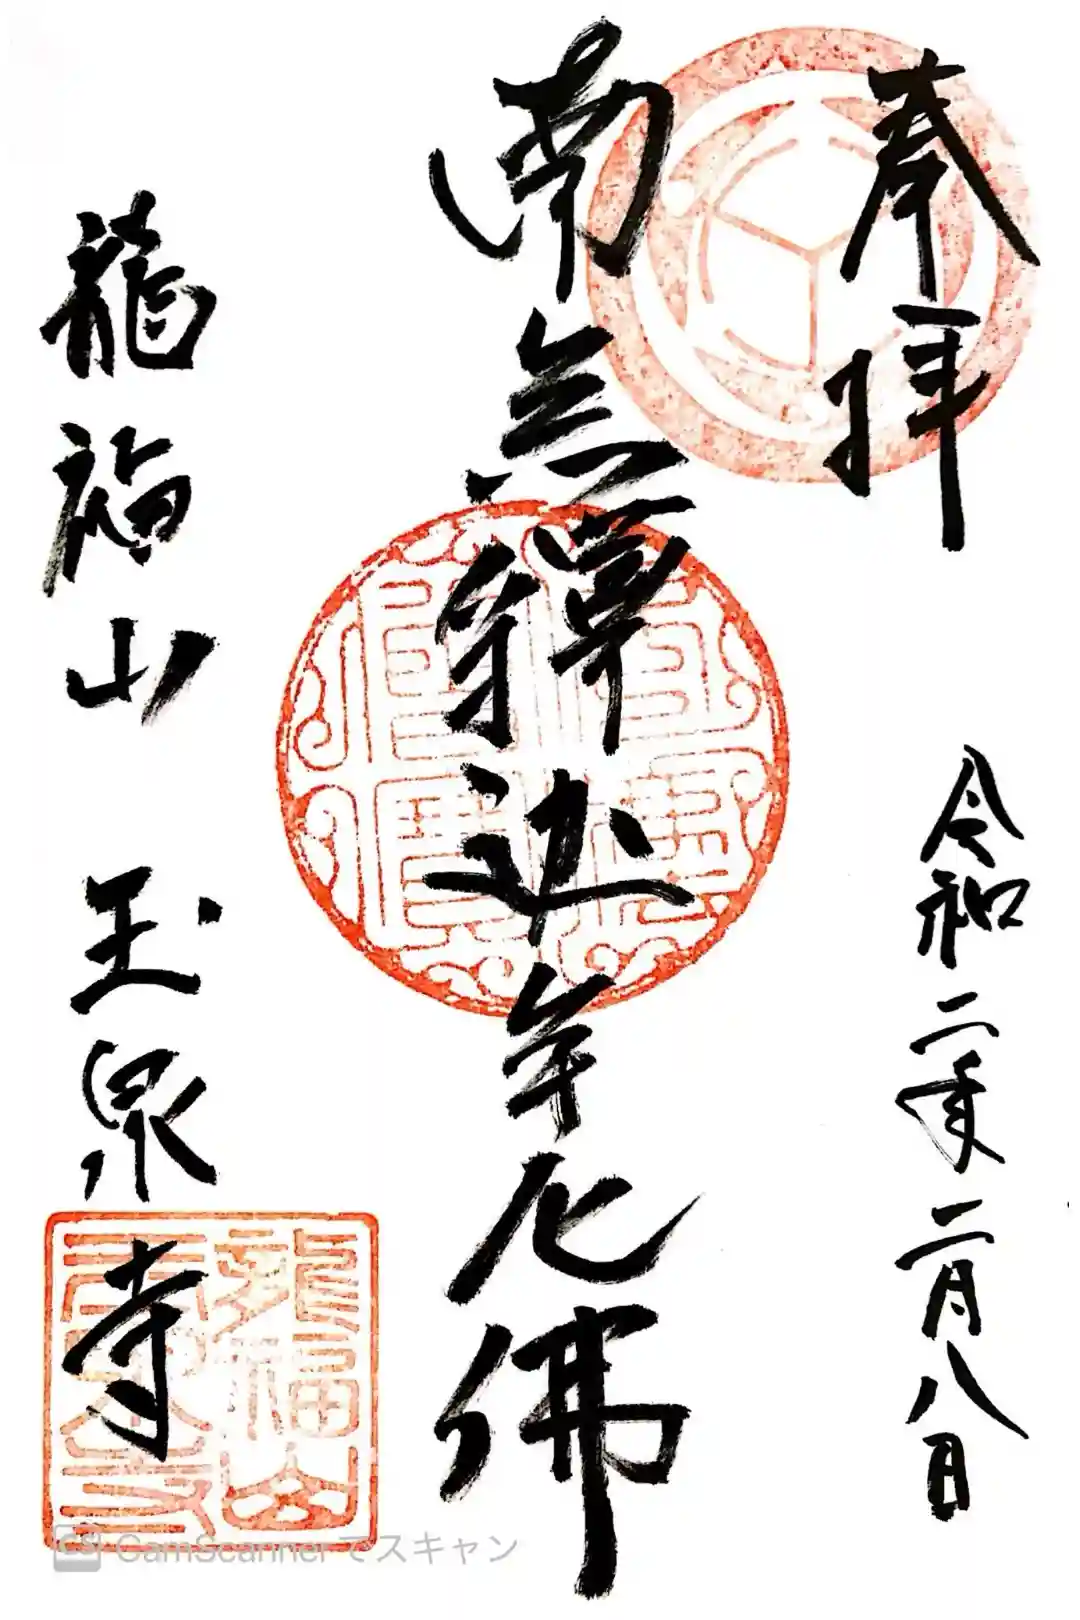 奉拝
令和二年二月八日
南無釋迦牟尼佛
龍福山 玉泉寺
龍福山
玉泉寺
佛法僧寶
CS CamScannerでスキャン